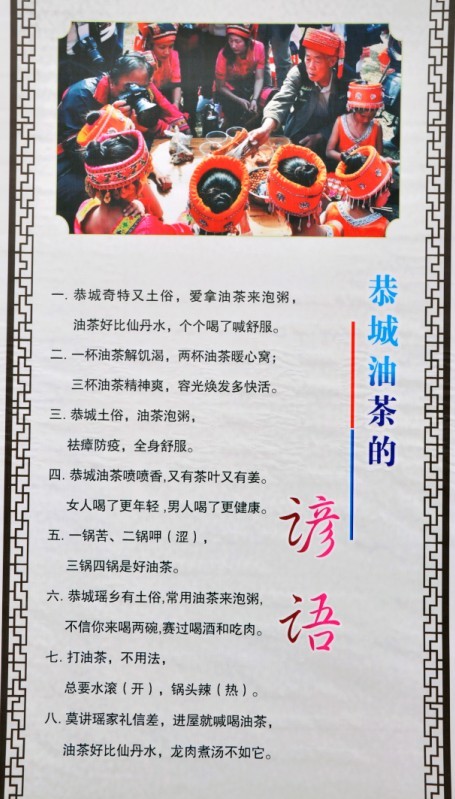 恭城油茶的
谚语
一. 恭城奇特又土俗，爱拿油茶来泡粥，
油茶好比仙丹水，个个喝了喊舒服。
二. 一杯油茶解饥渴，两杯油茶暖心窝；
三杯油茶精神爽，容光焕发多快活。
三. 恭城土俗，油茶泡粥，
祛瘴防疫，全身舒服。
四. 恭城油茶喷喷香,又有茶叶又有姜。
女人喝了更年轻,男人喝了更健康。
五. 一锅苦、二锅呷（涩），
三锅四锅是好油茶。
六. 恭城瑶乡有土俗,常用油茶来泡粥,
不信你来喝两碗,赛过喝酒和吃肉。
七. 打油茶，不用法，
总要水滚（开），锅头辣（热）。
八. 莫讲瑶家礼信差，进屋就喊喝油茶，
油茶好比仙丹水，龙肉煮汤不如它。